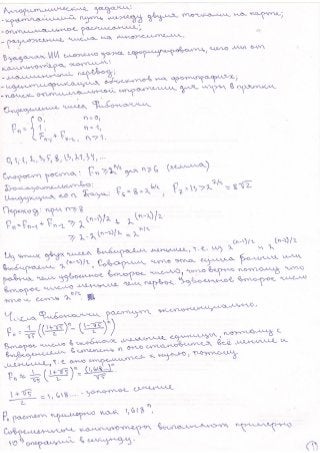 Алгоритмические задачи:
- кратчайший путь между двумя точками на карте;
- оптимальное расписание;
- разложение числа на множители.
В задачах ИИ сложно даже сформулировать, чего мы от
компьютера хотим:
- машинный перевод;
- идентификация объектов на фотографиях;
- поиск оптимальной стратегии для игры в прятки
Определение чисел Фибоначчи
Fn = { 0, n=0,
1, n=1,
Fn-1 + Fn-2, n>1.
0, 1, 1, 2, 3, 5, 8, 13, 21, 34, ...
Скорость роста: Fn ≥ 2^(n/2) для n≥6 (лемма)
Доказательство:
Индукция по n. База: F6 = 8 = 2^(6/2), F7 = 13 ≥ 2^(7/2) = 8√2
Переход: при n≥8
Fn = Fn-1 + Fn-2 ≥ 2^((n-1)/2) + 2^((n-2)/2)
≥ 2·2^((n-2)/2) = 2^(n/2)
Из этих двух чисел выбираем меньшее, т.е. из 2^((n-1)/2) и 2^((n-2)/2)
выбираем 2^((n-2)/2). Говорим что эта сумма больше или
равна чем удвоенное второе число, что верно потому что
второе число меньше чем первое. Удвоенное второе число
это и есть 2^(n/2)
Числа Фибоначчи растут экспоненциально.
Fn = 1/√5 ((1+√5)/2)^n − ((1−√5)/2)^n
Второе число в скобках меньше единицы, поэтому с
возведением в степень n оно становится всё меньше и
меньше, т.е. оно стремится к нулю, поэтому
Fn ≈ 1/√5 ((1+√5)/2)^n ≈ (1,618)^n/√5
(1+√5)/2 = 1,618... - золотое сечение
Fn растет примерно как 1,618^n.
Современные компьютеры выполняют примерно
10^9 операций в секунду.
1